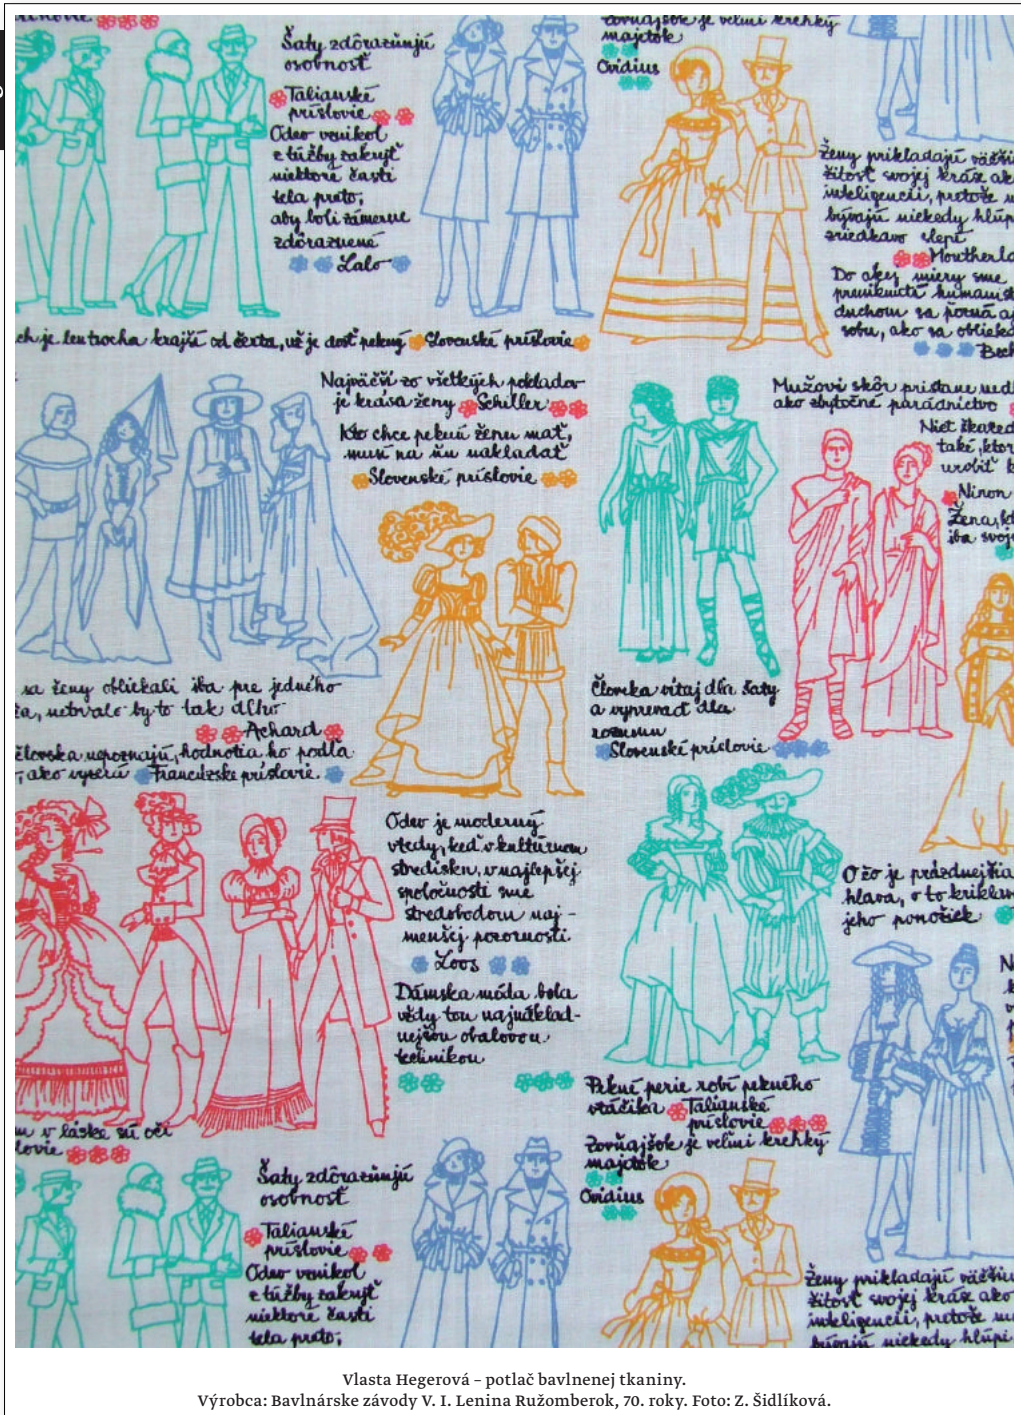 Šaty zdôrazňujú
osobnosť
Talianské
príslovie
Odev vznikol
z túžby zakryť
niektoré časti
tela preto,
aby boli zámerne
zdôraznené
Lalo
Zovňajšok je velmi krehký
majetok
Ovidius
Ženy prikladajú
žitosť svojej kráse
inteligencii, pretože
bývajú niekedy
zriedkavo slepí
Do akej miery sme
preniknutí
duchom sa pozná
sobu, ako sa
ch je len trocha krajší od čerta, už je dosť pekný Slovenské príslovie
Najväčší zo všetkých pokladov
je krása ženy Schiller
Kto chce peknú ženu mať,
musí na ňu nakladať
Slovenské príslovie
Mužovi skôr pristane
ako zbytočné parádnictvo
Niet
také, ktor
urobiť k
Ninon
Žena, k
iba svoj
sa ženy obliekali iba pre jedného
a, netrvalo by to tak dlho
Achard
človeka nepoznajú, hodnotia ho podľa
, ako vyzerá Francúzske príslovie
Človeka vítaj dla šaty
a vyprevaď dla
rozumu
Slovenské príslovie
Odev je moderný
vtedy, keď v kultúrnom
stredisku, v najlepšej
spoločnosti sme
stredobodom naj-
menšej pozornosti
Loos
Dámska móda bola
vždy tou najnáklad-
nejšou obalovou
technikou
O čo je prázdnejšia
hlava, o to
jeho ponožiek
Pekné perie robí pekného
vtáčika Talianské
príslovie
Zovňajšok je velmi krehký
majetok
Ovidius
v láske sú oči
lovie
Šaty zdôrazňujú
osobnosť
Talianské
príslovie
Odev vznikol
z túžby zakryť
niektoré časti
tela preto,
Ženy prikladajú
žitosť svojej kráse ako
inteligencii, pretože
bývajú niekedy hlúpi
Vlasta Hegerová – potlač bavlnenej tkaniny.
Výrobca: Bavlnárske závody V. I. Lenina Ružomberok, 70. roky. Foto: Z. Šidlíková.